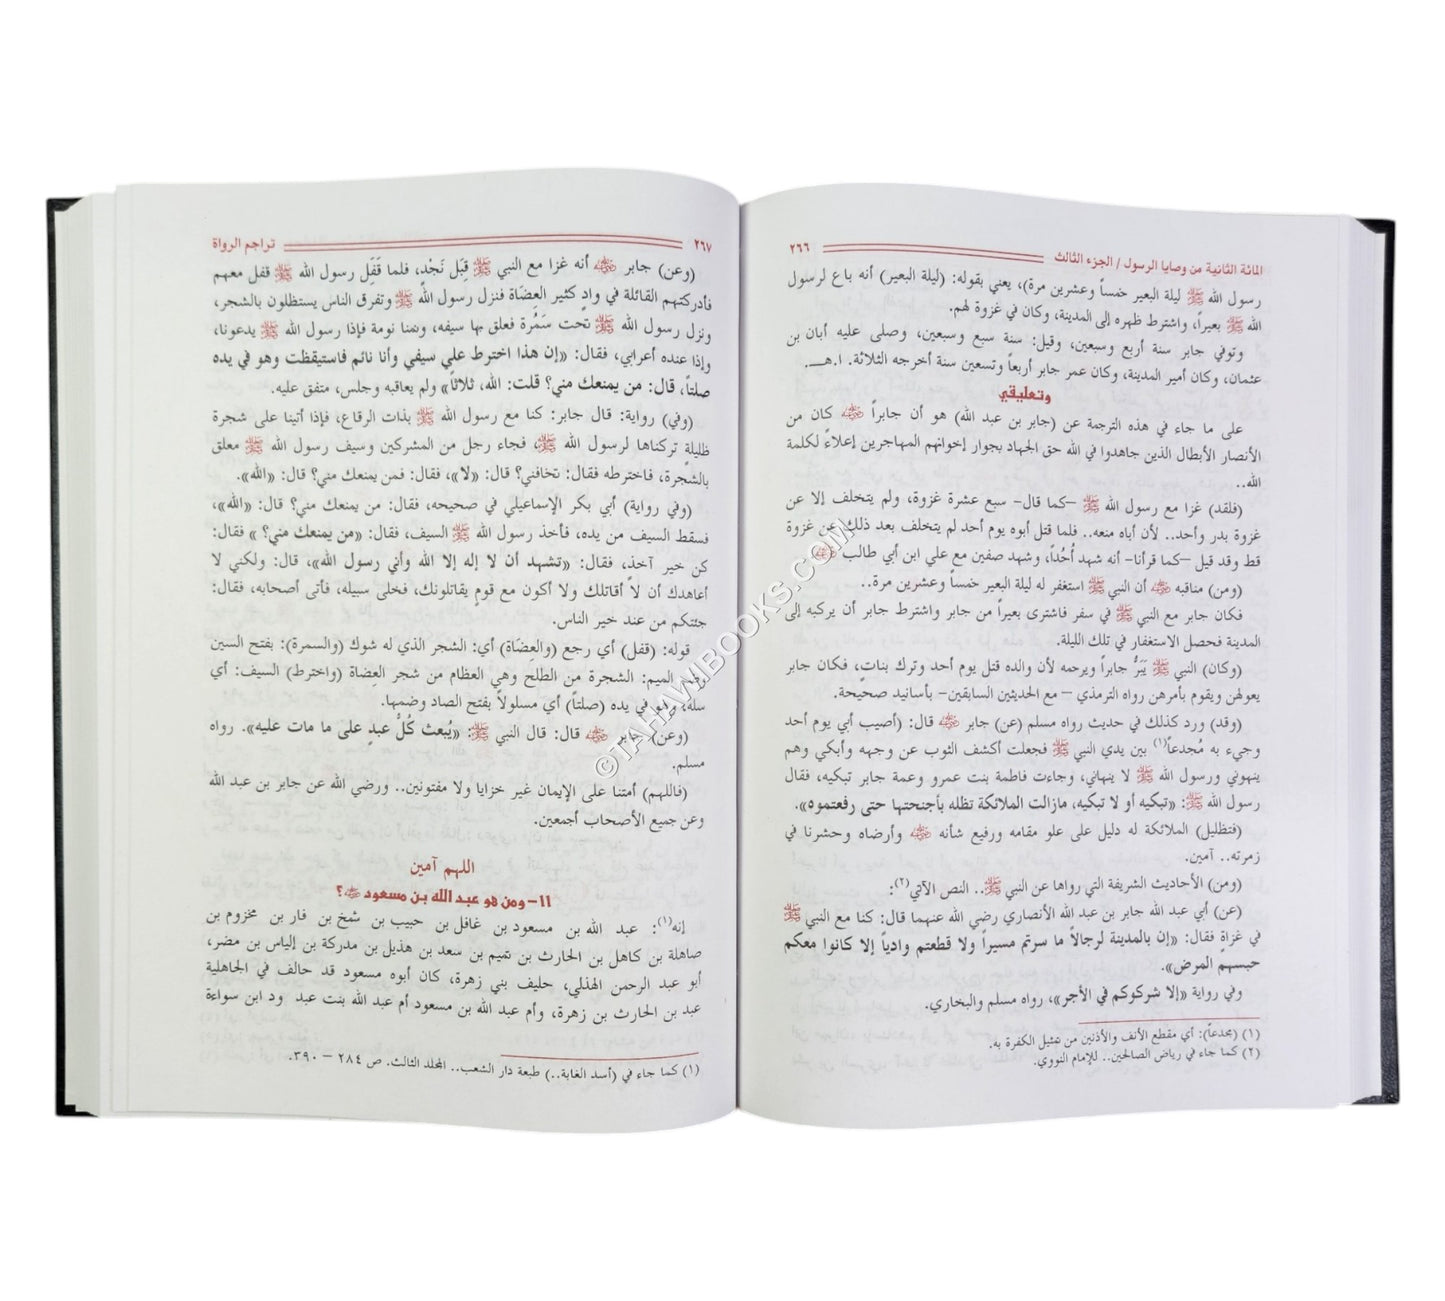 المائة الثانية من وصايا الرسول / الجزء الثالث ٢٦٦
رسول الله ﷺ ليلة البعير خمساً وعشرين مرة)، يعني بقوله: (ليلة البعير) أنه باع لرسول
الله ﷺ بعيراً، واشترط ظهره إلى المدينة، وكان في غزوة لهم.
وتوفي جابر سنة أربع وسبعين، وقيل: سنة سبع وسبعين، وصلى عليه أبان بن
عثمان، وكان أمير المدينة، وكان عمر جابر أربعاً وتسعين سنة أخرجه الثلاثة. ا.هـ.
وتعليقي
على ما جاء في هذه الترجمة عن (جابر بن عبد الله) هو أن جابراً ﵁ كان من
الأنصار الأبطال الذين جاهدوا في الله حق الجهاد بجوار إخوانهم المهاجرين إعلاءً لكلمة
الله..
(فلقد) غزا مع رسول الله ﷺ –كما قال– سبع عشرة غزوة، ولم يتخلف إلا عن
غزوة بدر وأحد.. لأن أباه منعه.. فلما قتل أبوه يوم أحد لم يتخلف بعد ذلك عن غزوة
قط وقد قيل –كما قرأنا– أنه شهد أُحُداً، وشهد صفين مع علي ابن أبي طالب ﵁
(ومن) مناقبه ﵁ أن النبي ﷺ استغفر له ليلة البعير خمساً وعشرين مرة..
فكان جابر مع النبي ﷺ في سفر فاشترى بعيراً من جابر واشترط جابر أن يركبه إلى
المدينة فحصل الاستغفار في تلك الليلة.
(وكان) النبي ﷺ يَبَرُّ جابراً ويرحمه لأن والده قتل يوم أحد وترك بناتٍ، فكان جابر
يعولهن ويقوم بأمرهن رواه الترمذي – مع الحديثين السابقين- بأسانيد صحيحة.
(وقد) ورد كذلك في حديث رواه مسلم (عن) جابر ﵁ قال: (أصيب أبي يوم أحد
وجيء به مُجدعاً(١) بين يدي النبي ﷺ فجعلت أكشف الثوب عن وجهه وأبكي وهم
ينهوني ورسول الله ﷺ لا ينهاني، وجاءت فاطمة بنت عمرو وعمة جابر تبكيه، فقال
رسول الله ﷺ: «تبكيه أو لا تبكيه، مازالت الملائكة تظله بأجنحتها حتى رفعتموه».
(فتظليل) الملائكة له دليل على علو مقامه ورفيع شأنه ﵁ وأرضاه وحشرنا في
زمرته.. آمين.
(ومن) الأحاديث الشريفة التي رواها عن النبي ﷺ.. النص الآتي(٢):
(عن) أبي عبد الله جابر بن عبد الله الأنصاري رضي الله عنهما قال: كنا مع النبي ﷺ
في غزاةٍ فقال: «إن بالمدينة لرجالاً ما سرتم مسيراً ولا قطعتم وادياً إلا كانوا معكم
حبسهم المرض».
وفي رواية «إلا شركوكم في الأجر»، رواه مسلم والبخاري.
(١) (مجدعاً): أي مقطع الأنف والأذنين من تمثيل الكفرة به.
(٢) كما جاء في رياض الصالحين.. للإمام النووي.
٢٦٧ تراجم الرواة
(وعن) جابر ﵁ أنه غزا مع النبي ﷺ قِبَل نَجْدٍ، فلما قَفَل رسول الله ﷺ قفل معهم
فأدركتهم القائلة في وادٍ كثير العِضَاة فنزل رسول الله ﷺ وتفرق الناس يستظلون بالشجر،
ونزل رسول الله ﷺ تحت سَمُرة فعلق بها سيفه، ونمنا نومة فإذا رسول الله ﷺ يدعونا،
وإذا عنده أعرابي، فقال: «إن هذا اخترط علي سيفي وأنا نائم فاستيقظت وهو في يده
صلتاً، قال: من يمنعك مني؟ قلت: الله، ثلاثاً» ولم يعاقبه وجلس، متفق عليه.
(وفي) رواية: قال جابر: كنا مع رسول الله ﷺ بذات الرقاع، فإذا أتينا على شجرة
ظليلةٍ تركناها لرسول الله ﷺ، فجاء رجل من المشركين وسيف رسول الله ﷺ معلق
بالشجرة، فاخترطه فقال: تخافني؟ قال: «لا»، فقال: فمن يمنعك مني؟ قال: «الله».
(وفي رواية) أبي بكر الإسماعيلي في صحيحه، فقال: من يمنعك مني؟ قال: «الله»،
فسقط السيف من يده، فأخذ رسول الله ﷺ السيف، فقال: «من يمنعك مني؟ » فقال:
كن خير آخذ، فقال: «تشهد أن لا إله إلا الله وأني رسول الله»، قال: ولكني لا
أعاهدك أن لا أقاتلك ولا أكون مع قومٍ يقاتلونك، فخلى سبيله، فأتى أصحابه، فقال:
جئتكم من عند خير الناس.
قوله: (قفل) أي رجع (والعِضَاة) أي: الشجر الذي له شوك (والسمرة): بفتح السين
وضم الميم: الشجرة من الطلح وهي العظام من شجر العِضاة (واخترط) السيف: أي
سله، وهو في يده (صلتاً) أي مسلولاً بفتح الصاد وضمها.
(وعن) جابر ﵁ قال: قال النبي ﷺ: «يُبعث كُلُّ عبدٍ على ما مات عليه». رواه
مسلم.
(فاللهم) أمتنا على الإيمان غير خزايا ولا مفتونين.. ورضي الله عن جابر بن عبد الله
وعن جميع الأصحاب أجمعين.
اللهم آمين
١١- ومن هو عبد الله بن مسعود ﵁؟
إنه(١): عبد الله بن مسعود بن غافل بن حبيب بن شمخ بن فار بن مخزوم بن
صاهلة بن كاهل بن الحارث بن تميم بن سعد بن هذيل بن مدركة بن إلياس بن مضر،
أبو عبد الرحمن الهذلي، حليف بني زهرة، كان أبوه مسعود قد حالف في الجاهلية
عبد بن الحارث بن زهرة، وأم عبد الله بن مسعود أم عبد الله بنت عبد ود ابن سواءة
(١) كما جاء في (أسد الغابة..) طبعة دار الشعب.. المجلد الثالث. ص ٢٨٤ – ٣٩٠.
© TAHAWIBOOKS.COM